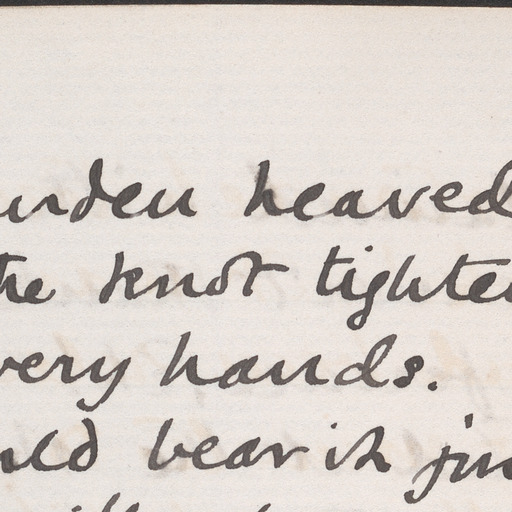 urden heaved
the knot tighte
very hands.
uld bear it ju